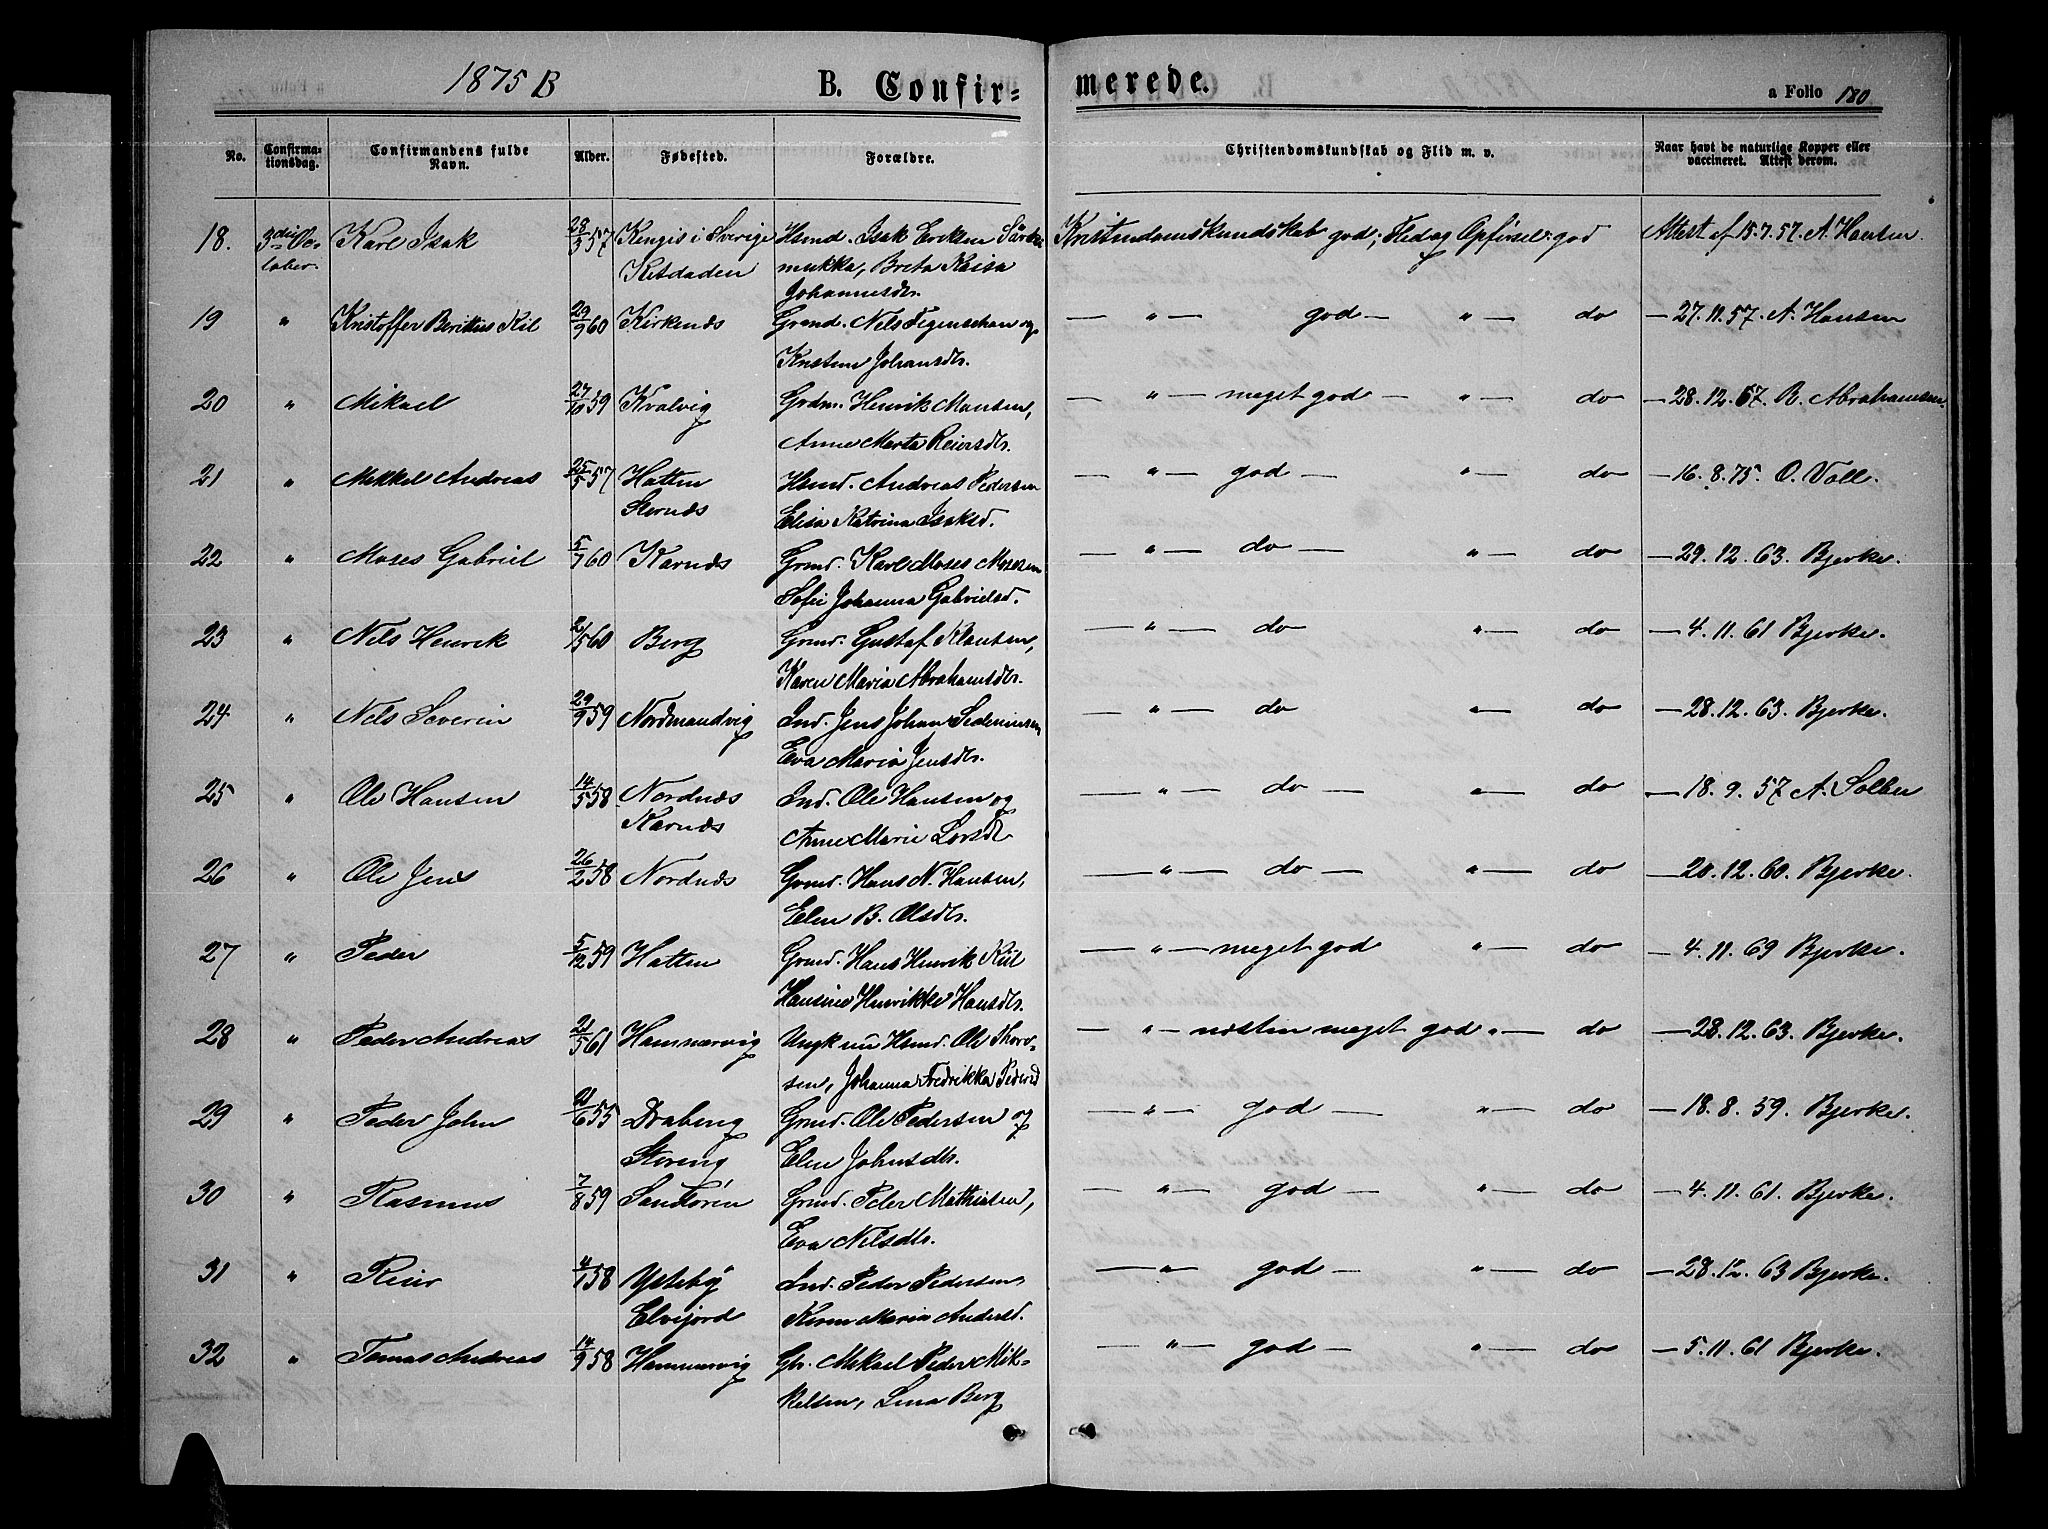 1875 B B. Confirmerede. a Folio 180
No. Confirmationsdag. Confirmandens fulde Navn. Alder. Fødested. Forældre. Christendomskundskab og Flid m. v. Naar havt de naturlige Kopper eller vaccineret. Attest derom.
18. 3die Oc- Karl Isak 28/3 57 Kengis i Sverige Hsmd. Isak Eriksen Kristendomskundskab god; Flid og Opførsel god Attest af 15.7.57. A. Hansen
tober. Kitdaden mukka, Breta Kaisa
Johannesdtr.
19 " Kristoffer Berittius Kiil 29/9 60 Kirknæs Grmd. Nels Figenschau og — " — god — " — do — 27.11.57. A. Hansen
Kristine Johansdtr.
20 " Mikael 27/10 59 Kvalvig Grdm. Henrik Monsen, — " — meget god — " — do — 28.12.67. R. Abrahamsen
Anne Marta Reiersdtr.
21 " Mikkel Andreas 25/5 57 Hatten Hsmd. Andreas Pedersen — " — god — " — do — 16.8.75. O. Voll.
Stornæs Elisa Katrina Isaksd.
22 " Moses Gabriel 5/7 60 Karnæs Grmd. Karl Moses Mosesen — " — do — " — do — 29.12.63. Bjerke.
Sofie Johanna Gabrielsd.
23 " Nels Henrik 21/5 60 Berg Grmd. Gustaf Klausen, — " — do " — do — 4.11.61 Bjerke.
Karen Maria Abrahamsdtr.
24 " Nels Severin 29/9 59 Nordmandvig Ind. Jens Johan Sedeniusen — " — do " — do — 28.12.63. Bjerke.
Eva Maria Jensdtr.
25 " Ole Hansen 14/5 58 Nordnæs Ind. Ole Hansen og — " — do — " — do — 18.9.57 A. Solber
Karnæs Anne Marie Larsdt
26 " Ole Jens 26/2 58 Nordnæs Grmd. Hans N. Hansen, — " — do — " — do — 20.12.60. Bjerke.
Elen B. Olsdtr.
27 " Peder 5/12 59 Hatten Grmd. Hans Henrik Kiil — " — meget god " — do — 4.11.69 Bjerke.
Hansine Henrikke Hansdtr.
28 " Peder Andreas 21/5 61 Hamnærvig Ungk nu Hsmd. Ole Thor- — " — næsten meget god " — do — 28.12.63. Bjerke.
sen, Johanna Fredrikka Pedersd
29 " Peder John 21/6 55 Draberg Grmd. Ole Pedersen og — " — god — " — do — 18.8.59. Bjerke.
Storeng Elen Johnsdtr.
30 " Rasmus 7/8 59 Sandøren Grmd. Peder Mathisen, — " — god — " — do — 4.11.61. Bjerke.
Eva Nilsdtr.
31 " Reier 4/1 58 Ysteby Ind. Peder Pedersen, — " — god — " — do — 28.12.63 Bjerke.
Elvejord Karen Maria Andersd.
32 " Tomas Andreas 14/9 58 Hamnærvig Gbr. Mikael Peder Mik- — " — god — " — do — 5.11.61 Bjerke.
kelsen, Lina Berg